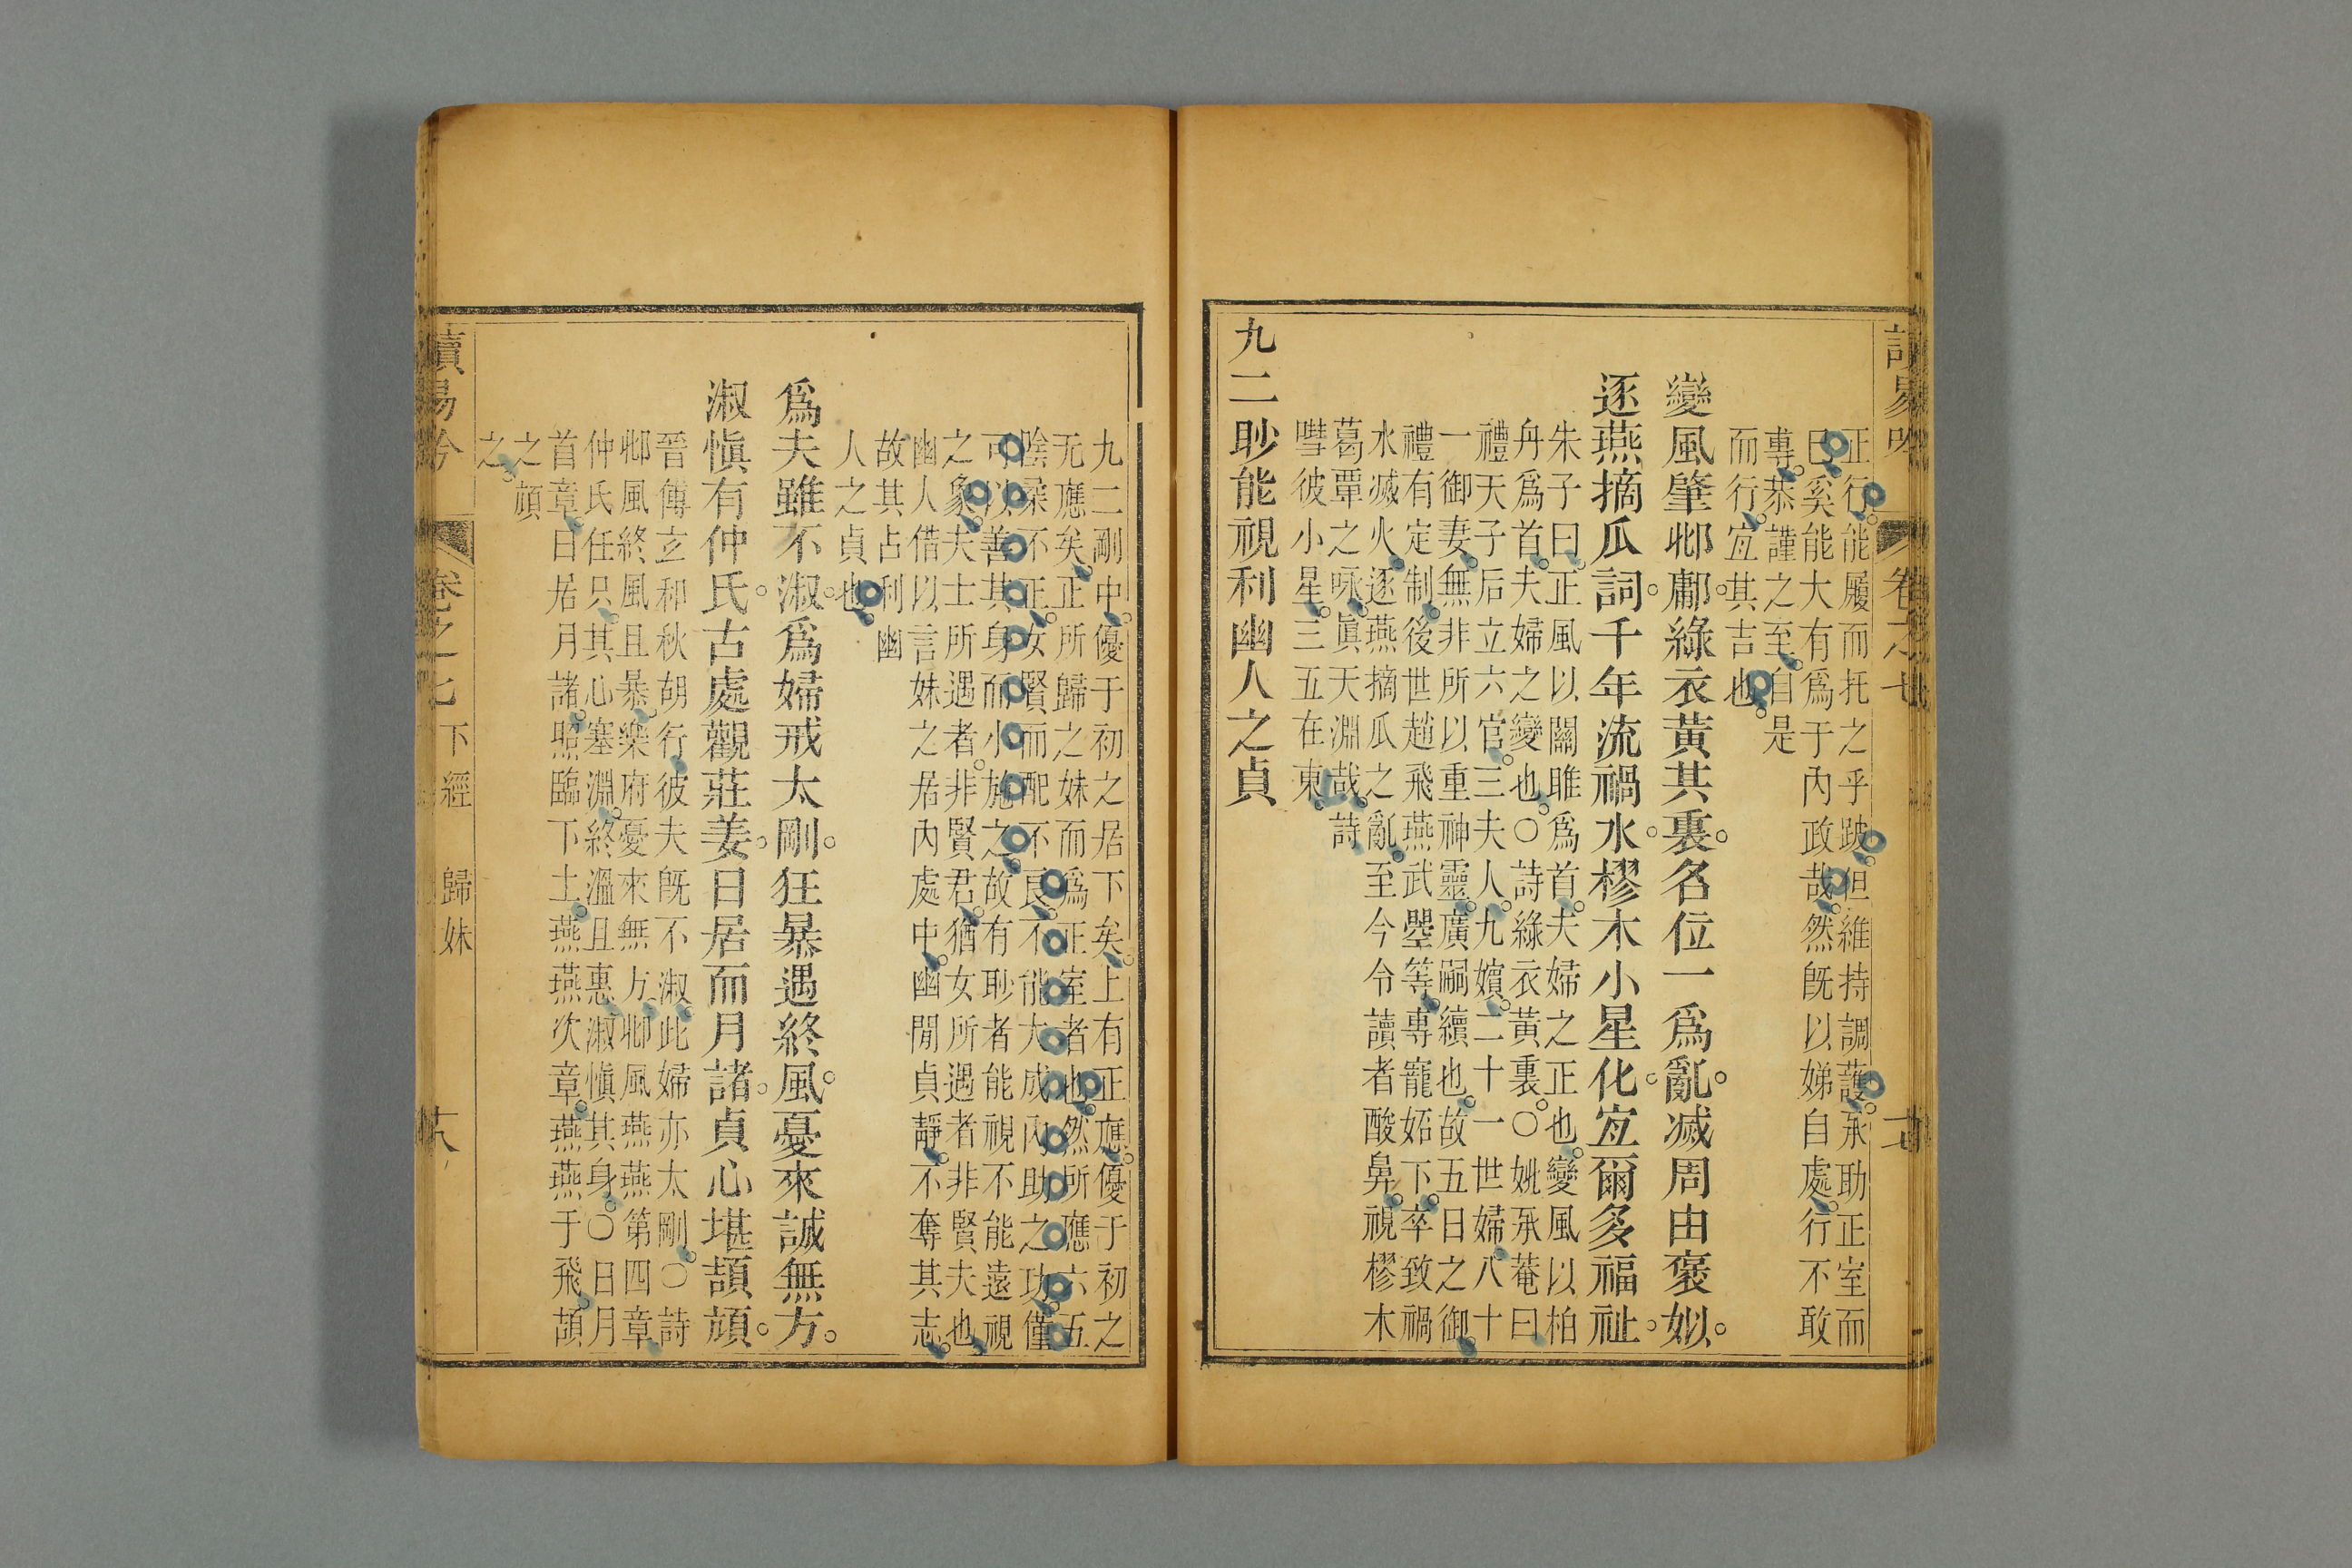 卷之七
廿七
正行能履而托之乎跛但維持調護承助正室而
已奚能大有爲于內政哉然旣以娣自處行不敢
專恭謹之至自是
而行宐其吉也
變風肇邶鄘綠衣黃其裏名位一爲亂滅周由褒姒
逐燕摘瓜詞千年流禍水樛木小星化宐爾多福祉
朱子曰正風以關雎爲首夫婦之正也變風以柏
舟爲首夫婦之變也○詩綠衣黃裏○姚承菴曰
禮天子后立六官三夫人九嬪二十一世婦八十
一御妻無非所以重神靈廣嗣續也故五日之御
禮有定制後世趙飛燕武曌等專寵妬下卒致禍
水滅火逐燕摘瓜之亂至今令讀者酸鼻視樛木
葛覃之咏眞天淵哉詩
嘒彼小星三五在東
九二眇能視利幽人之貞
九二剛中優于初之居下矣上有正應優于初之
无應矣正所歸之妹而爲正室者也然所應六五
陰柔不正女賢而配不良不能大成內助之功僅
可以善其身而小施之故有眇者能視不能遠視
之象夫士所遇者非賢君猶女所遇者非賢夫也
幽人借以言妹之居內處中幽閒貞靜不奪其志
故其占利幽
人之貞也
爲夫雖不淑爲婦戒太剛狂暴遇終風憂來誠無方
淑愼有仲氏古處觀莊姜日居而月諸貞心堪頡頏
晉傅玄和秋胡行彼夫旣不淑此婦亦太剛○詩
邶風終風且暴樂府憂來無方邶風燕燕第四章
仲氏任只其心塞淵終溫且惠淑愼其身○日月
首章日居月諸照臨下土燕燕次章燕燕于飛頡
之頏
之
讀易吟
卷之七
下經
歸妹
廿八